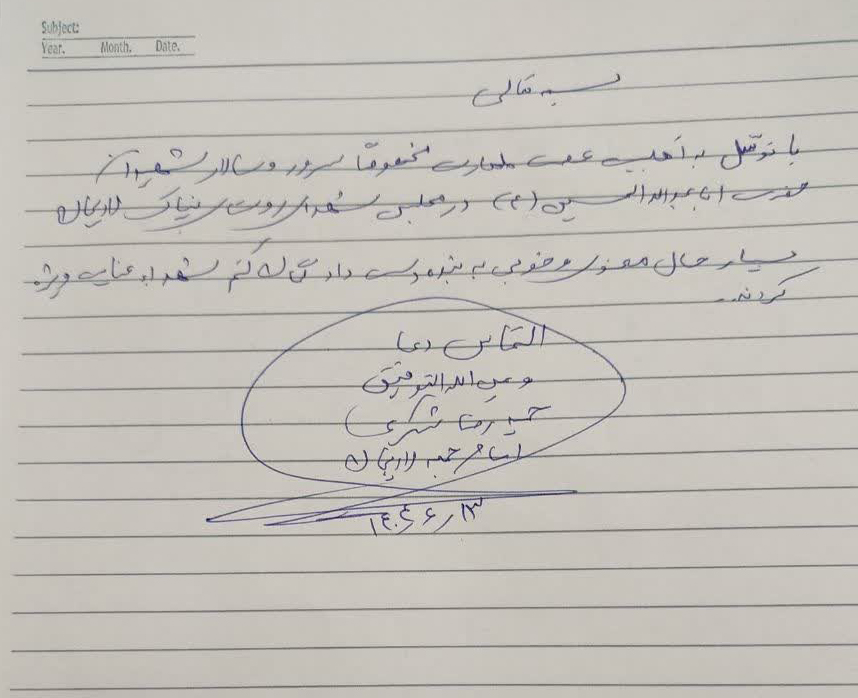 Subject:
Year. Month. Date.
بسمه تعالی
با توسّل به اهلبیت عصمت و طهارت مخصوصاً سرور و سالار شهیدان
حضرت اباعبدالله الحسین (ع) در مجلس شهدای روستای لاریجان
بسیار حال معنوی و خوبی به بنده دست داد گمان کنم شهداء عنایت ویژه
کردند..
التماس دعا
و من الله التوفیق
حمید رضا شکری
امام جمعه لاریجان
۱۴۰۴ ر ۶ ر ۱۳